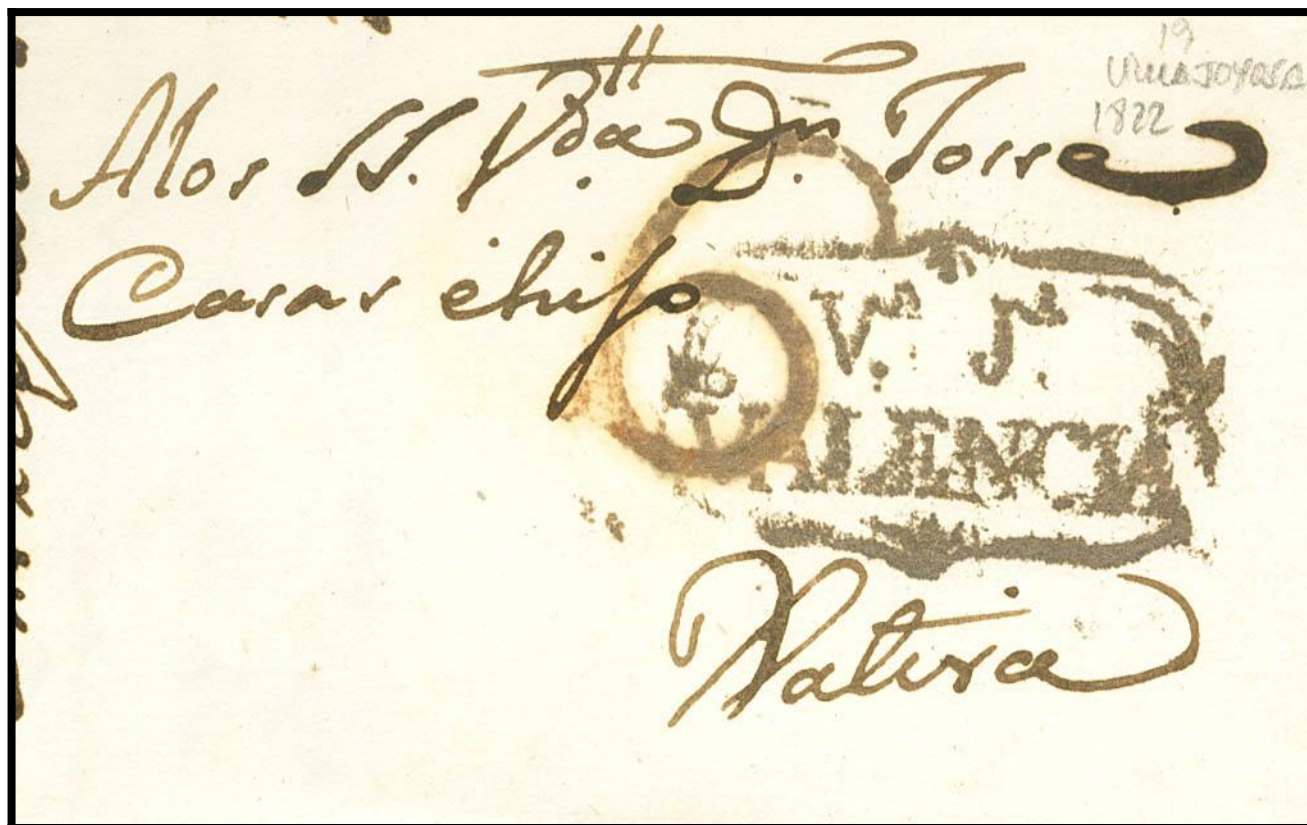 19
VILLAJOYOSA
1822
A los SS. V.da D.n Jorra
Casas è hijo
V.n J.a
VALENCIA
Xativa